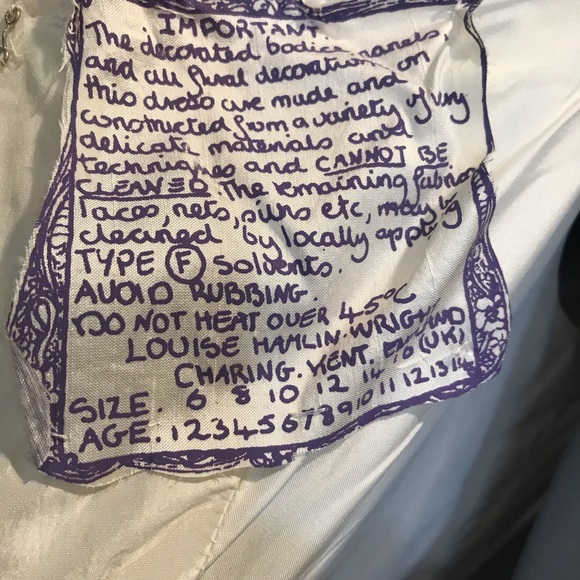 IMPORTANT.
The decorated bodices, panels,
and all floral decoration on
this dress are made and
constructed from a variety of very
delicate materials and
techniques and CANNOT BE
CLEANED. The remaining fabrics
laces, nets, etc, may be
cleaned by locally applying
TYPE F solvents.
AVOID RUBBING.
DO NOT HEAT OVER 45°C
LOUISE HAMLIN-WRIGHT
CHARING. KENT. ENGLAND
SIZE. 6 8 10 12 14 16 (UK)
AGE. 1 2 3 4 5 6 7 8 9 10 11 12 13 14